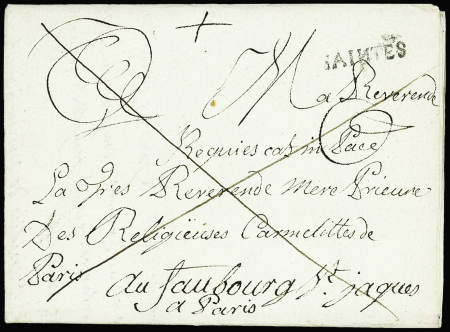 SAINTES
+
Ma Reverende
Requiescat in Pace
La Tres Reverende Mere Prieure
Des Religieuses Carmelittes de
Paris
au faubourg St jaques
a Paris